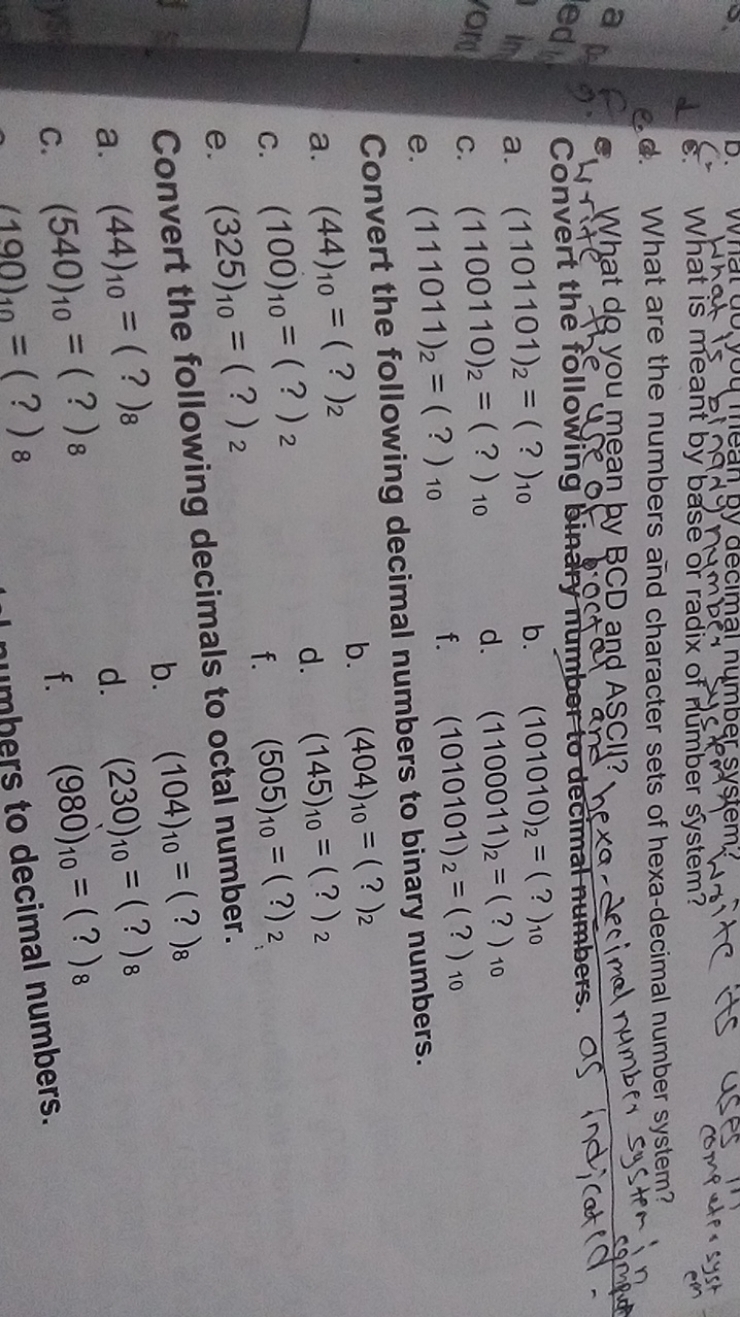 b. What do you mean by decimal number system? Write its uses in
What is binary number system computer syst
em
c. What is meant by base or radix of number system?
e.d. What are the numbers and character sets of hexa-decimal number system?
e. What do you mean by BCD and ASCII?
Write the use of octal and hexa-decimal number system in
comput
Convert the following binary number to decimal numbers. as indicated.
a. (1101101)2 = ( ? )10 b. (101010)2 = ( ? )10
c. (1100110)2 = ( ? ) 10 d. (1100011)2 = ( ? ) 10
e. (111011)2 = ( ? ) 10 f. (1010101) 2 = ( ? ) 10
Convert the following decimal numbers to binary numbers.
a. (44)10 = ( ? )2 b. (404)10 = ( ? )2
c. (100)10 = ( ? ) 2 d. (145)10 = ( ? ) 2
e. (325)10 = ( ? ) 2 f. (505)10 = ( ?) 2
Convert the following decimals to octal number.
a. (44)10 = ( ? )8 b. (104)10 = ( ? )8
c. (540)10 = ( ? ) 8 d. (230)10 = ( ? )8
(190)10 = ( ? ) 8 f. (980)10 = ( ? ) 8
numbers to decimal numbers.